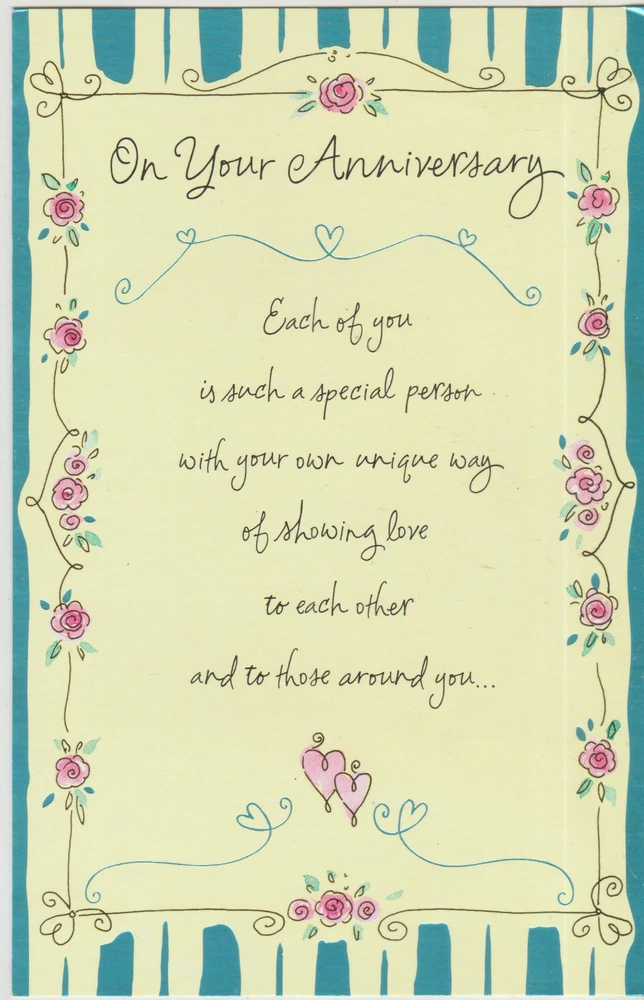 On Your Anniversary
Each of you
is such a special person
with your own unique way
of showing love
to each other
and to those around you...